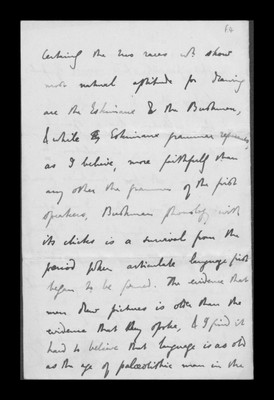 64
certainly the two races wh show
most natural aptitude for drawing
are the Eskimaux & the Bushmen,
& while the Eskimaux grammar represents,
as I believe, more faithfully than
any other the grammar of the first
speakers, Bushman phonology with
its clicks is a survival from the
period when articulate language first
began to be formed. The evidence that
men drew pictures is older than the
evidence that they spoke, & I find it
hard to believe that language is as old
as the age of palæolithic man in the